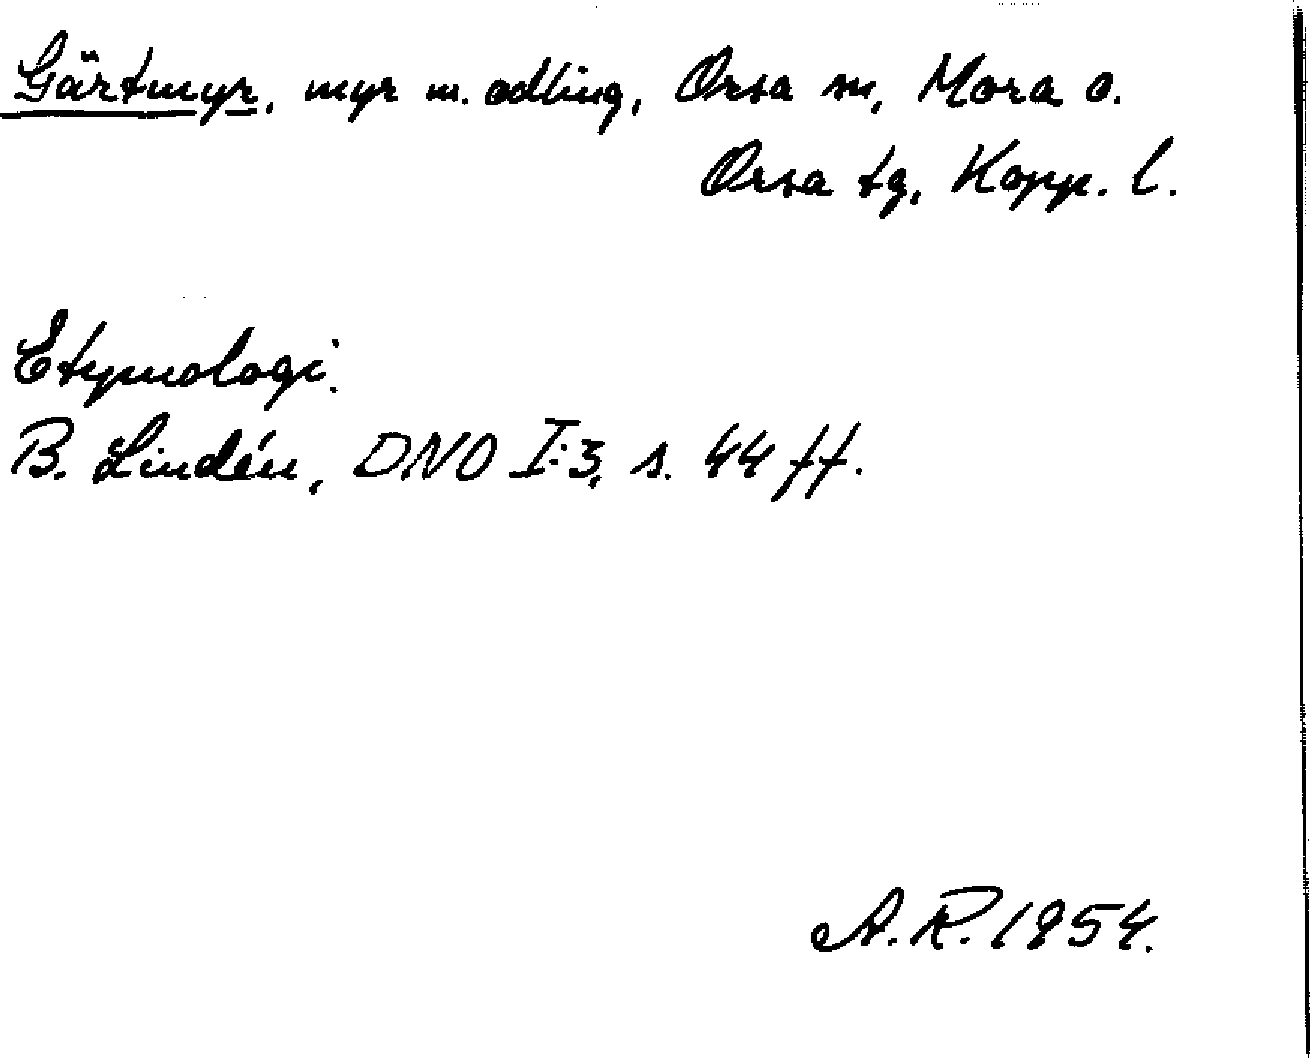 Gärtmyr, myr m. odling, Orsa sn, Mora o.
Orsa tg, Kopp. l.
Etymologi.
B. Lindén, DNO I:3, s. 44 ff.
A.R. 1954.